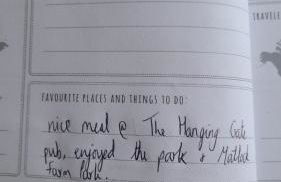 TRAVELE
FAVOURITE PLACES AND THINGS TO DO:
nice meal @ The Hanging Gate
pub, enjoyed the park & Matlock
farm Park.